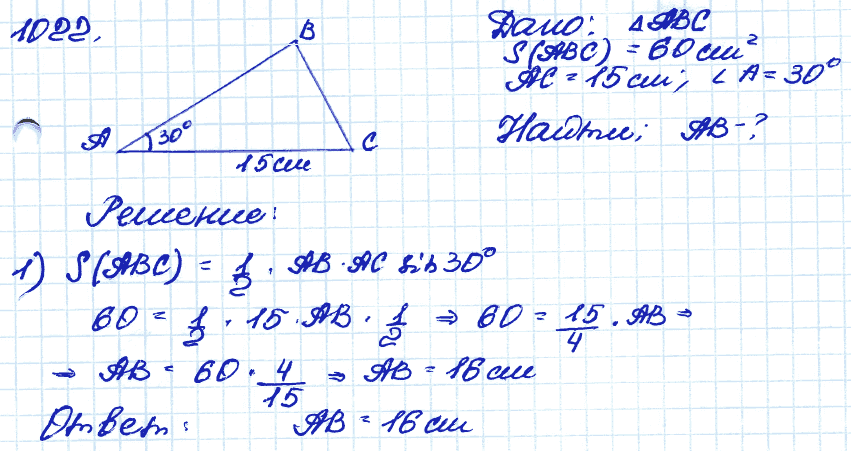 1022.
B
A
30°
C
15 см
Дано: △ABC
S(ABC) = 60 см²
AC = 15 см; ∠A = 30°
Найти; AB - ?
Решение:
1) S(ABC) = 1/2 · AB · AC sin 30°
60 = 1/2 · 15 · AB · 1/2 ⇒ 60 = 15/4 · AB ⇒
⇒ AB = 60 · 4/15 ⇒ AB = 16 см
Ответ: AB = 16 см